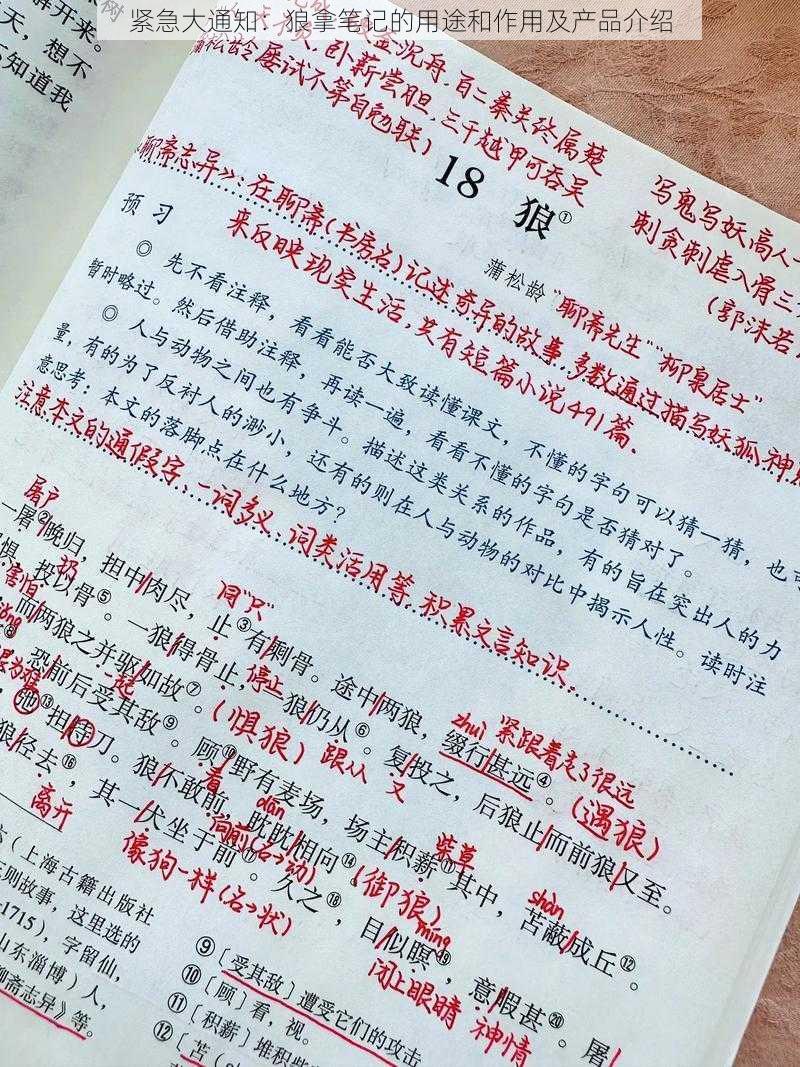 紧急大通知：狼拿笔记的用途和作用及产品介绍
解开来。
天，想不
知道我
沉舟，百二秦关终属楚
人，卧薪尝胆，三千越甲可吞吴
蒲松龄屡试不第自勉联）
18 狼①
蒲松龄 "聊斋先生" "柳泉居士"
写鬼写妖高人一
刺贪刺虐入骨三
（郭沫若
《聊斋志异》：在聊斋（书房名）记述奇异的故事，多数通过描写妖狐神
来反映现实生活，共有短篇小说491篇。
预习
◎ 先不看注释，看看能否大致读懂课文，不懂的字句可以猜一猜，也可
暂时略过。然后借助注释，再读一遍，看看不懂的字句是否猜对了。
◎ 人与动物之间也有争斗。描述这类关系的作品，有的旨在突出人的力
量，有的为了反衬人的渺小，还有的则在人与动物的对比中揭示人性。读时注
意思考：本文的落脚点在什么地方？
注意本文的通假字、一词多义、词类活用等，积累文言知识。
屠户
同"只"
zhuì 紧跟着走了很远
一屠②晚归，担中肉尽，止③有剩骨。途中两狼，缀行甚远④。（遇狼）
害怕 扔
停止 跟从 又
惧，投以骨⑤。一狼得骨止，一狼仍从⑥。复投之，后狼止而前狼又至。
一起 （惧狼）
而两狼之并驱如故⑦。
看 柴草 shàn
恐前后受其敌⑨。顾⑩野有麦场，场主积薪⑪其中，苫蔽成丘⑫。
弛⑬担持刀。狼不敢前，眈眈相向⑭。（御狼）
dān 向前（名→动）
离开
狼径去⑯，其一犬坐于前⑰。久之⑱，目似瞑⑲，意暇甚⑳。屠
像狗一样（名→状） míng 闭上眼睛 神情
（上海古籍出版社
则故事，这里选的
1715），字留仙，
山东淄博）人，
聊斋志异》等。
⑨〔受其敌〕遭受它们的攻击
⑩〔顾〕看，视。
⑪〔积薪〕堆积柴
⑫〔苫（